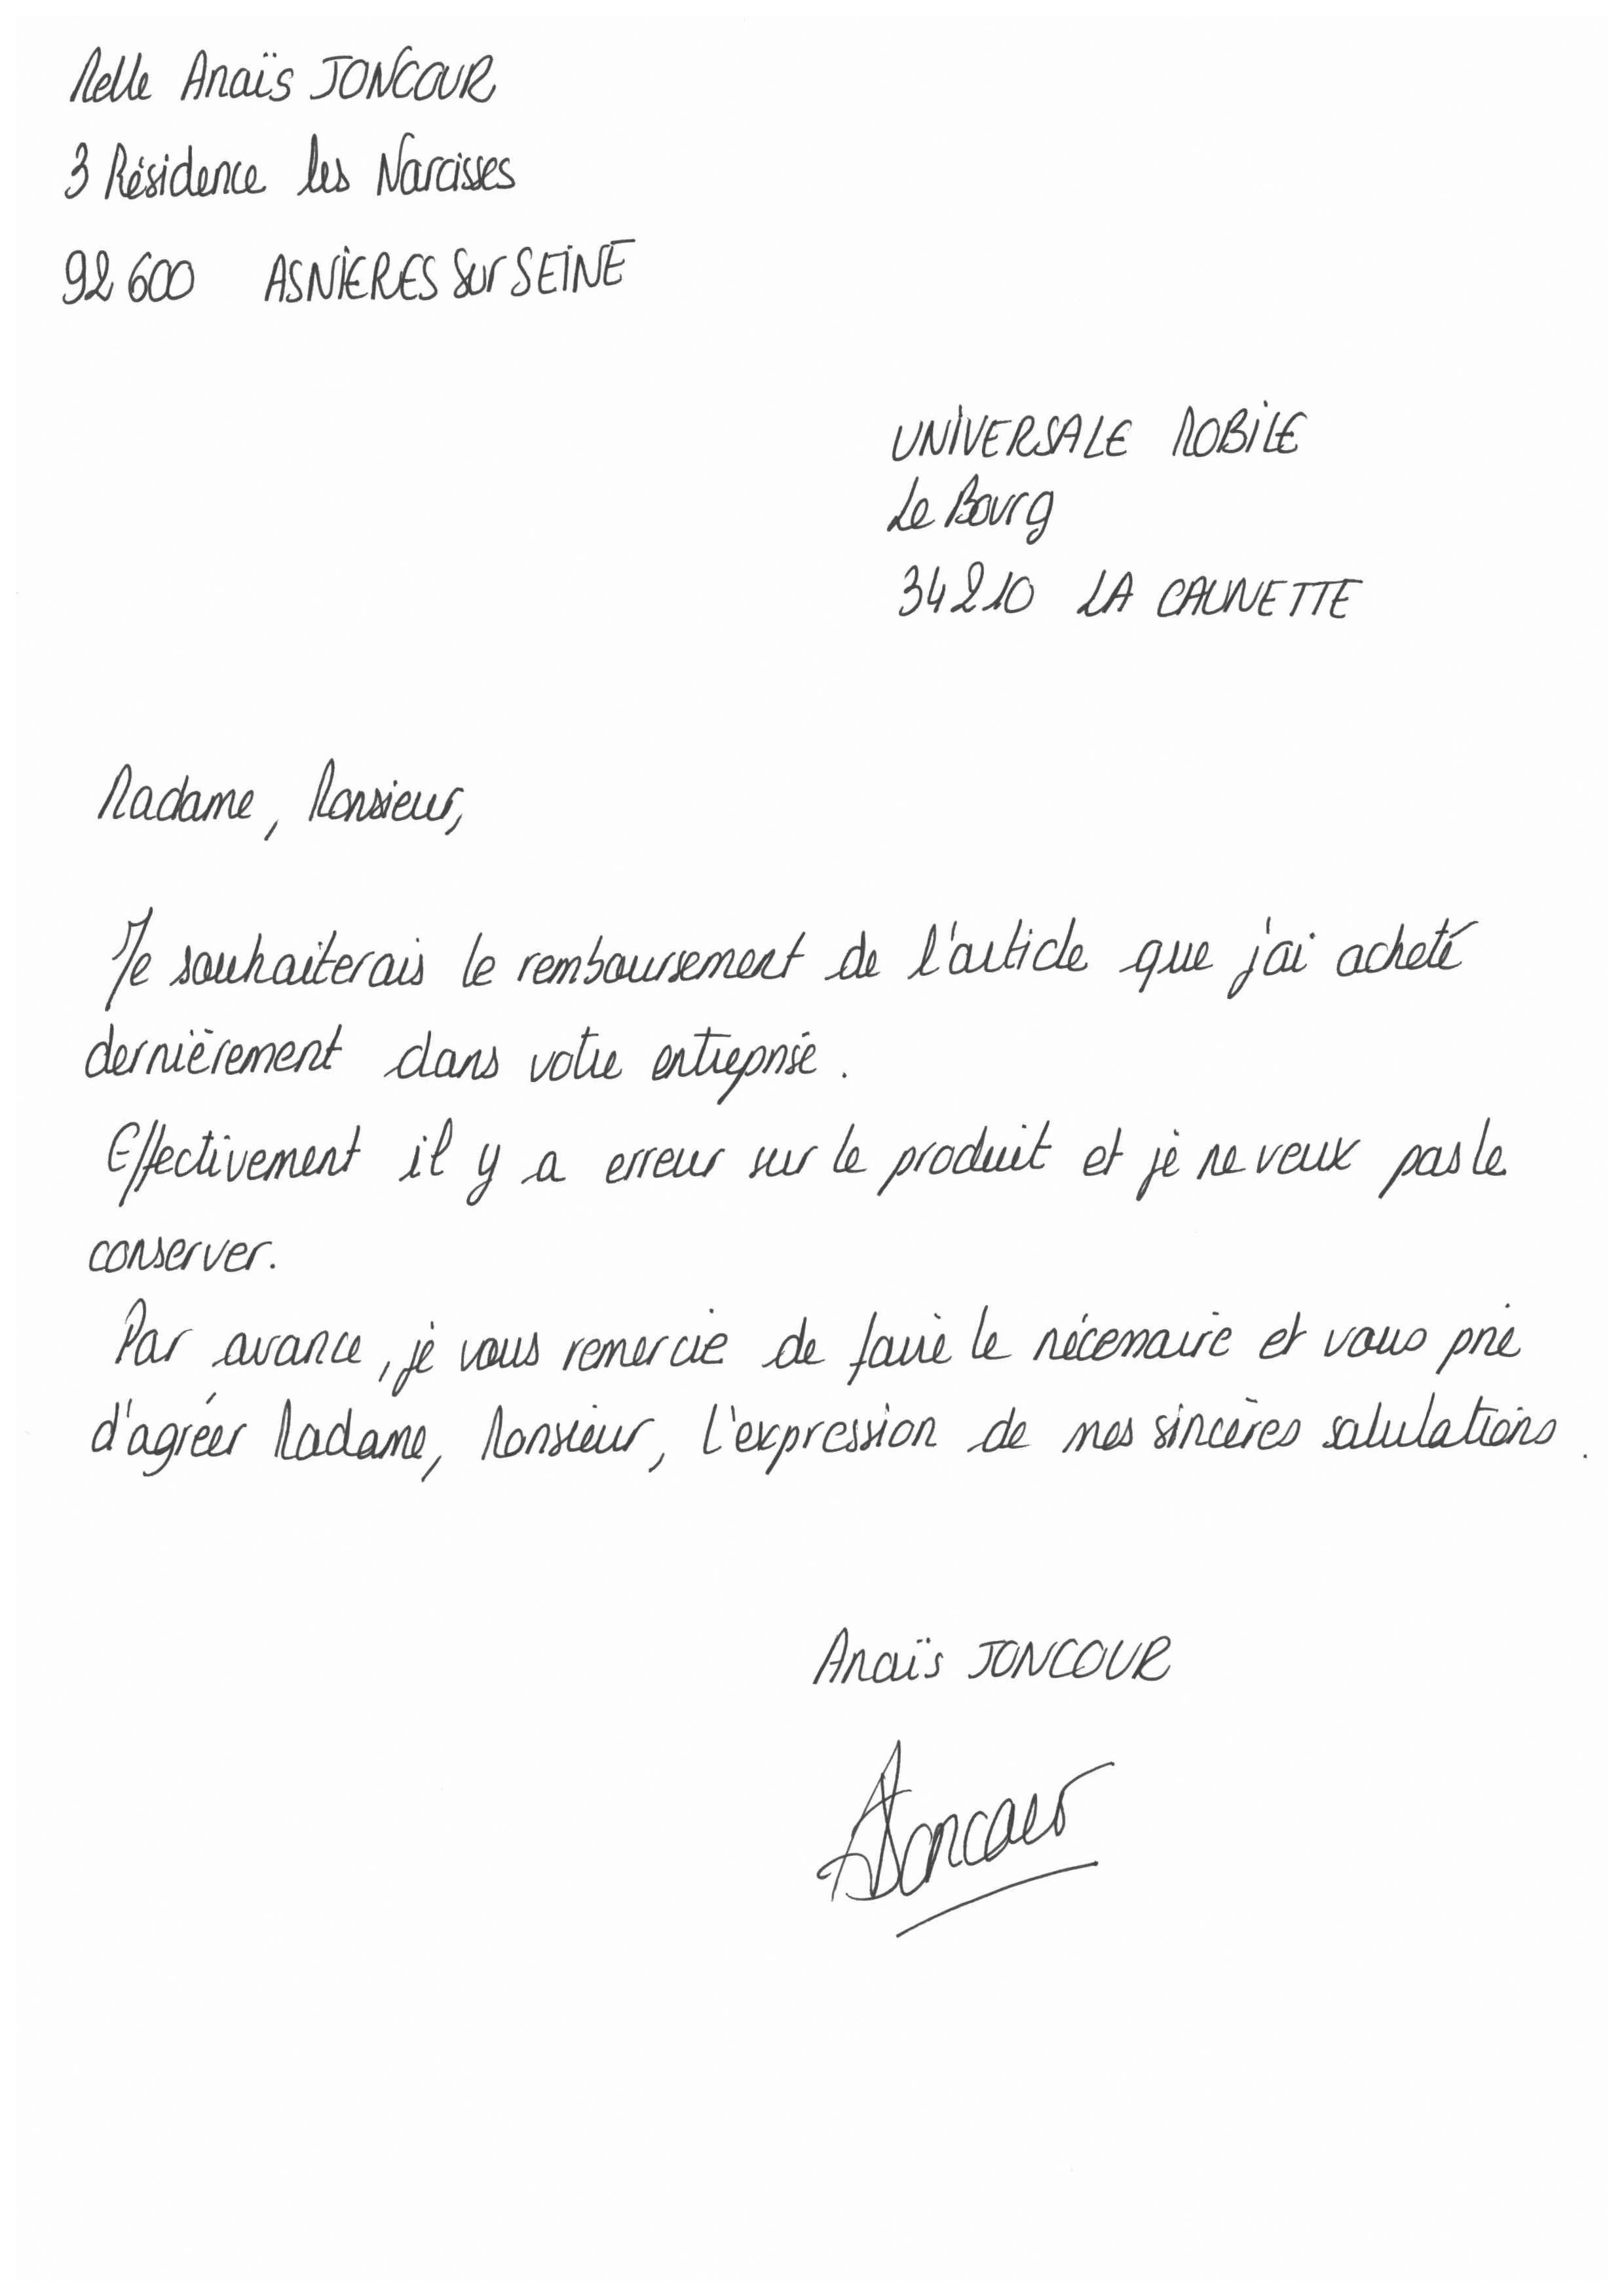 Melle Anaïs JONCOUR
3 Résidence les Narcisses
92 600 ASNIERES Sur SEINE
UNIVERSALE MOBILE
Le Bourg
34210 LA CAUNETTE
Madame, Monsieur,
Je souhaiterais le remboursement de l'article que j'ai acheté
dernièrement dans votre entreprise.
Effectivement il y a erreur sur le produit et je ne veux pas le
conserver.
Par avance, je vous remercie de faire le nécessaire et vous prie
d'agréer Madame, Monsieur, l'expression de mes sincères salutations.
Anaïs JONCOUR
AJoncour